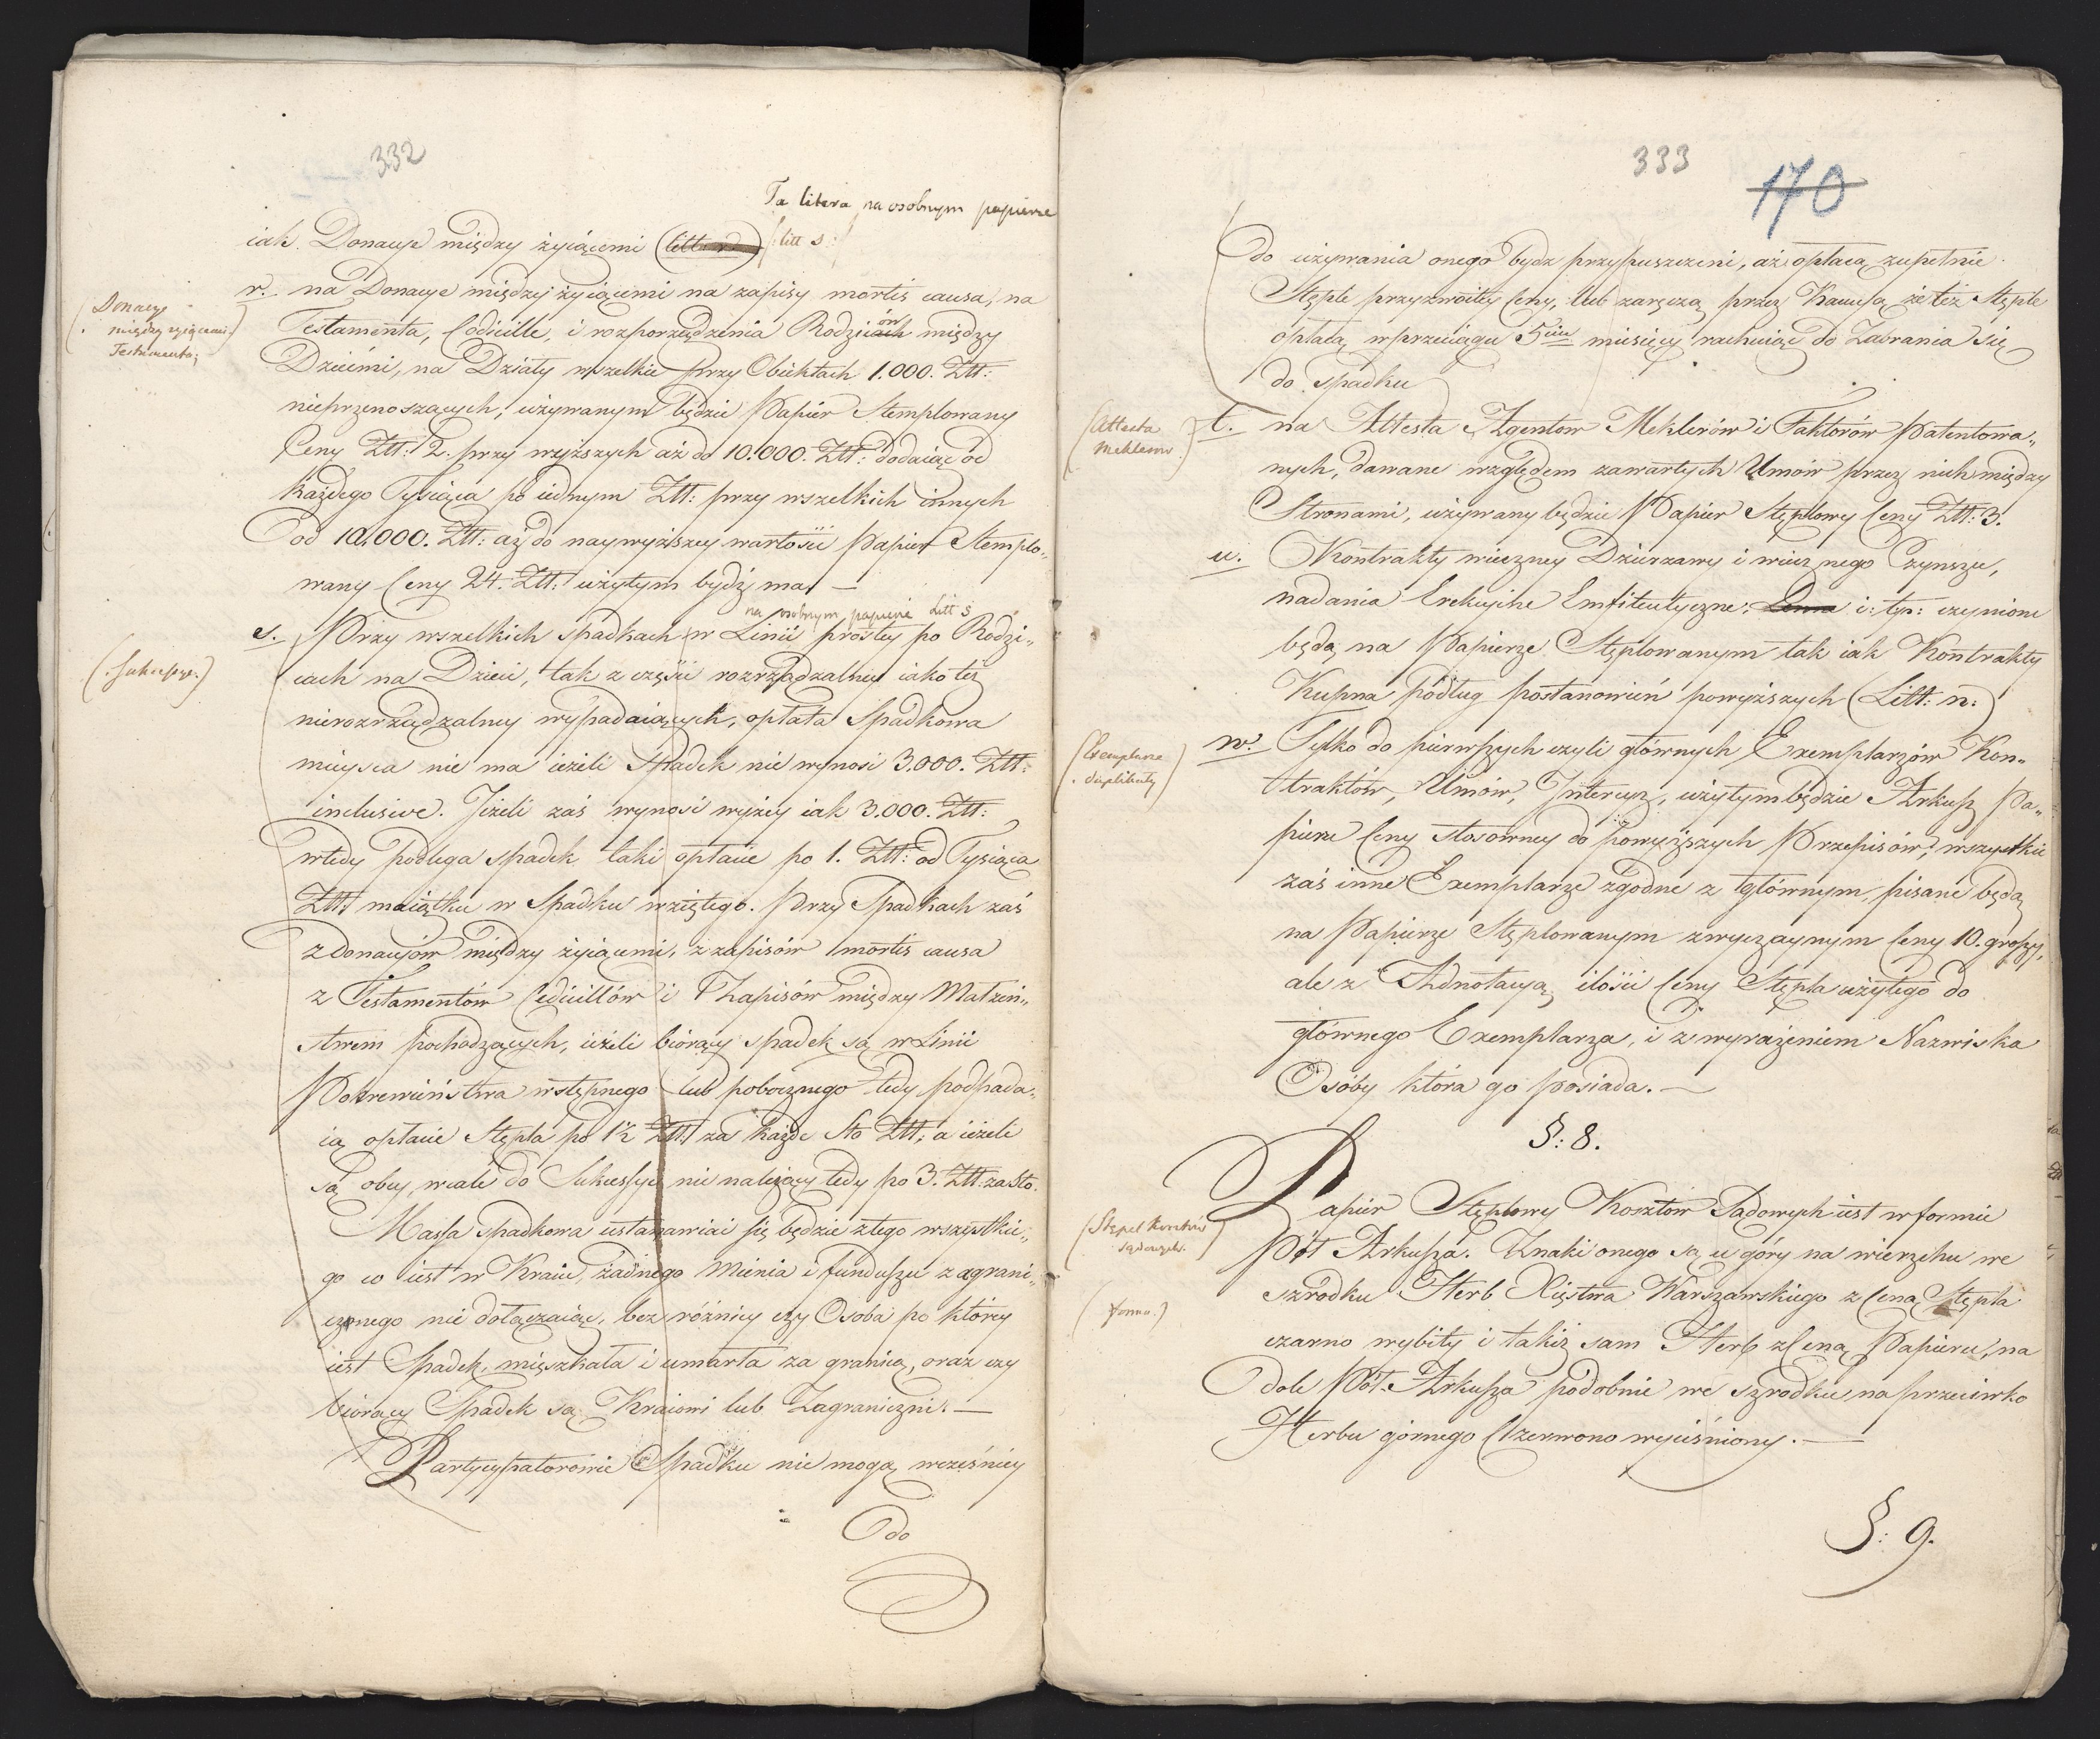 332
Ta litera na osobnym papierze
iak. Donacye między żyiącemi (litt: r.) /:litt s:/
(Donacye
między żyiącemi)
Testamenta;
r. na Donacye między żyiącemi na zapisy mortis causa, na
Testamenta, Codicille, i rozporządzenia Rodzicach ów między
Dziećmi, na Działy wszelkie przy Obiektach 1.000. Ztt:
nieprzenoszących, używanym będzie Papier Stemplowany
Ceny Ztt: 2. przy wyższych aż do 10.000. Ztt: dodaiąc od
każdego Tysiąca po iednym Ztt: przy wszelkich innych
od 10,000. Ztt: aż do naywyższey wartości Papier Stemplo„
wany Ceny 24. Ztt: użytym bydź ma. —
na osobnym papierze Litt s
(Sukcessye.)
s. Przy wszelkich spadkach w Linii prostey po Rodzi„
cach na Dzieci, tak z części rozrządzalney iako też
nierozrządzalney wypadaiących, opłata Spadkowa
mieysca nie ma ieżeli Spadek nie wynosi 3,000. Ztt:
inclusive. Jeżeli zaś wynosi wyżey iak 3.000. Ztt:
wtedy podlega spadek taki opłacie po 1. Ztt: od Tysiąca
Ztt: maiątku w Spadku wziętego. Przy Spadkach zaś
z donacyów między żyiącemi, z zapisów mortis causa
z Testamentów Codicillów i Zapisów między Małżeń„
stwem pochodzących, ieżeli biorący spadek są w Linii
Pokrewieństwa wstępnego lub pobocznego tedy podpada„
ią opłacie Stępla po 1½ Ztt: za każde Sto Ztt; a ieżeli
są obcy, wcale do Sukcessyi nie należący tedy po 3. Ztt: za Sto.
Massa spadkowa ustanawiać się będzie z tego wszystkie„
go co iest w Kraiu, żadnego Mienia i funduszu zagrani„
cznego nie dołączaiąc, bez różnicy czy Osoba po którey
iest Spadek, mięszkała i umarła za granicą, oraz czy
biorący Spadek są Kraiowi lub Zagraniczni. —
Partycypatorowie Spadku nie mogą wcześniey
do
333
170
do używania onego bydz przypuszczeni, aż opłacą zupełnie
Stęple przyzwoitey Ceny, lub zaręczą przez Kaucyą że też Stęple
opłacą w przeciągu 5ciu miesięcy rachuiąc do Zabrania się
do spadku
(Attesta
Meklerów.)
t. na Attesta Agentów Meklerów i Faktorów Patentowa„
nych, dawane względem zawartych Umów przez nich między
Stronami, używany będzie Papier Stęplowy Ceny Ztt: 3.
u. Kontrakty wieczney Dzierzawy i wiecznego Czynszu,
nadania Erekcyine Emfiteutyczne, i: tp: czynione
będą na Papierze Stęplowanym tak iak Kontrakty
Kupna podług postanowień powyższych (Litt: n:)
(Exemplarze
duplikaty)
w. Tylko do pierwszych czyli głównych Exemplarzów Kon„
traktów, Umów, Intercyz, użytym będzie Arkusz Pa„
pieru Ceny stosowney do powyższych Przepisów, wszystkie
zaś inne Exemplarze zgodne z głównym, pisane będą
na Papierze Stęplowanym zwyczaynym Ceny 10. groszy,
ale z Adnotacyą ilości Ceny Stępla użytego do
głównego Exemplarza, i z wyrażeniem Nazwiska
Osóby która go posiada. —
§: 8.
(Stępel kosztów
sądowych.)
Papier Stęplowy Kosztów Sądowych iest w formie
Pół Arkusza. Znaki onego są u góry na wierzchu we
(forma.)
szrodku Herb Xięstwa Warszawskiego z Ceną Stępla
czarno wybity i takiż sam Herb z Ceną Papieru, na
dole Pół-Arkusza podobnie we szrodku naprzeciwko
Herbu górnego Czerwono wyciśniony. —
§: 9.